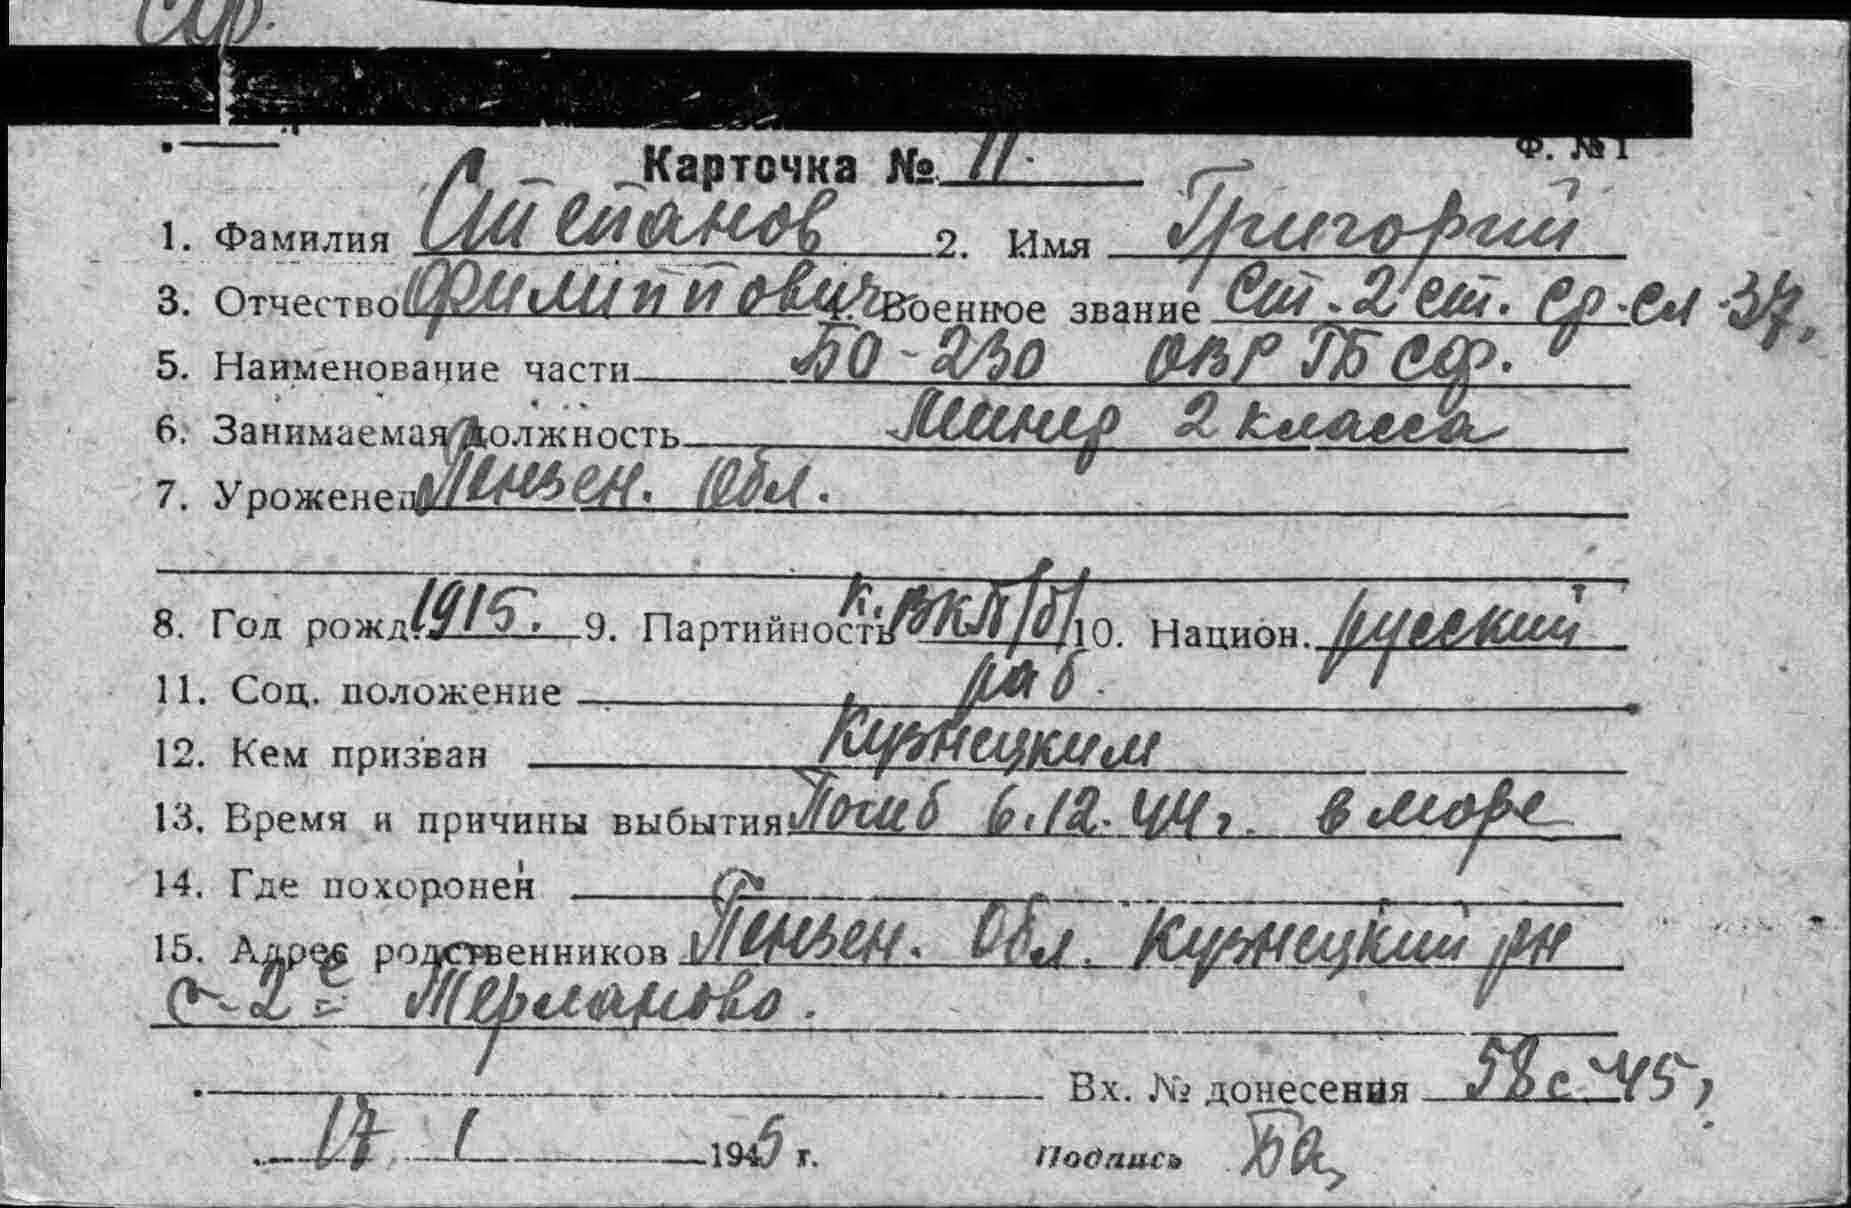 СФ.
Ф. № 1
Карточка № 11.
1. Фамилия Степанов 2. Имя Григорий
3. Отчество Филиппович 4. Военное звание Ст. 2 ст. ср-сл-37.
5. Наименование части БО-230 ОВР ГБ СФ.
6. Занимаемая должность Минер 2 класса
7. Уроженец Пензен. обл.
8. Год рожд. 1915. 9. Партийность к. ВКП/б/ 10. Национ. русский
11. Соц. положение раб.
12. Кем призван Кузнецким
13. Время и причины выбытия Погиб 6.12.44 г. в море
14. Где похоронен
15. Адрес родственников Пензен. Обл. Кузнецкий рн
Терманово.
Вх. № донесения 58с-45г
17 1 1945 г. Подпись